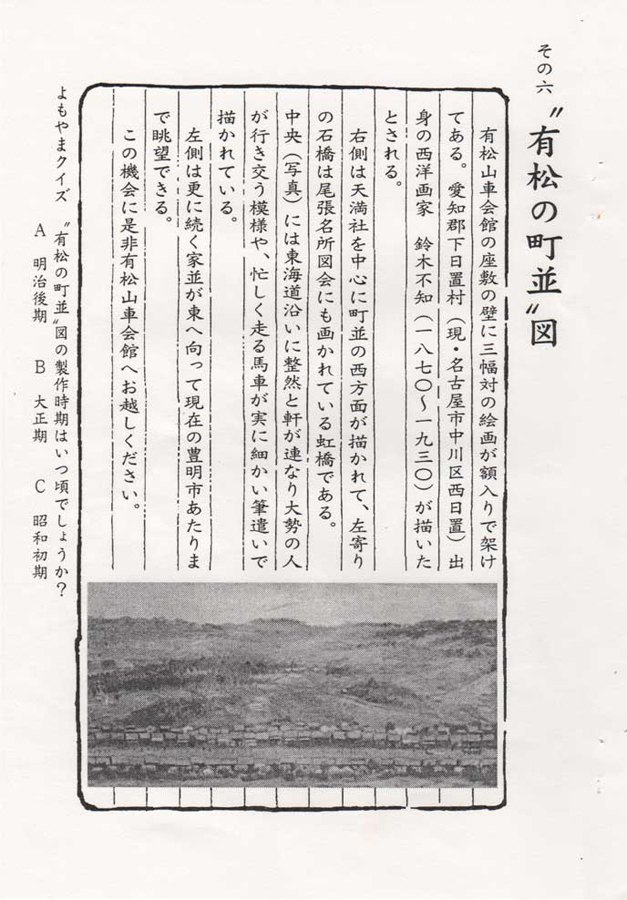 その六
〝有松の町並〟図
有松山車会館の座敷の壁に三幅対の絵画が額入りで架け
てある。愛知郡下日置村（現・名古屋市中川区西日置）出
身の西洋画家　鈴木不知（一八七〇～一九三〇）が描いた
とされる。
右側は天満社を中心に町並の西方面が描かれて、左寄り
の石橋は尾張名所図会にも画かれている虹橋である。
中央（写真）には東海道沿いに整然と軒が連なり大勢の人
が行き交う模様や、忙しく走る馬車が実に細かい筆遣いで
描かれている。
左側は更に続く家並が東へ向って現在の豊明市あたりま
で眺望できる。
この機会に是非有松山車会館へお越しください。
よもやまクイズ　〝有松の町並〟図の製作時期はいつ頃でしょうか？
A　明治後期　　B　大正期　　C　昭和初期